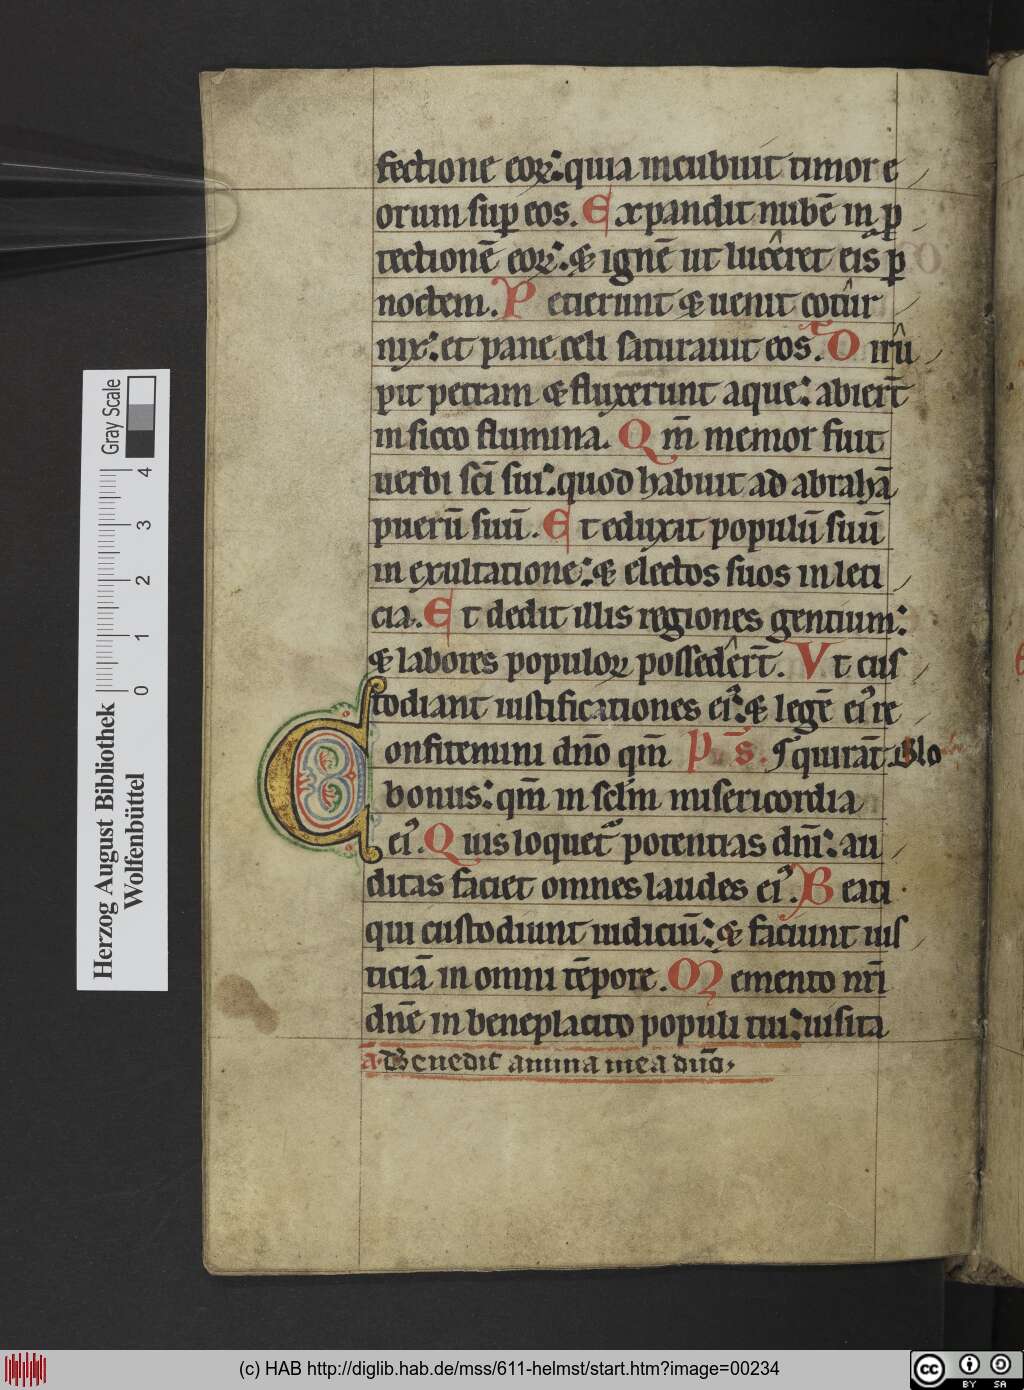 fectione eoꝝ: quia incubuit timor e
orum sup eos. Expandit nubē in ꝓ
tectionē eoꝝ: & ignē ut lucêret eis ꝑ
noctem. Petierunt & uenit cotûr
nix: et pane celi saturauit eos. Dirû
pit petram & fluxerunt aque: abiert̄
in sicco flumina. Qm̄ memor fuit
uerbi sc̄i sui: quod habuit ad abrahā
puerū suū. Et eduxit populū suū
in exultatione: & electos suos in leti
cia. Et dedit illis regiones gentium:
& labores populoꝝ possedêrt̄. Vt cus
todiant iustificationes ei᾿: & legē ei᾿ re
Confitemini dn̄o qm̄ Ps. quirāt.
bonus: qm̄ in sclm̄ misericordia
ei᾿. Quis loquet᾿ potentias dn̄i: au
ditas faciet omnes laudes ei᾿. Beati
qui custodiunt iudiciū: & faciunt ius
ticiā in omni tēpore. Memento nr̄i
dn̄e in beneplacito populi tui: uisita
a. Benedic anima mea dn̄o.
Gray Scale
0 1 2 3 4
Herzog August Bibliothek
Wolfenbüttel
(c) HAB http://diglib.hab.de/mss/611-helmst/start.htm?image=00234
cc BY SA